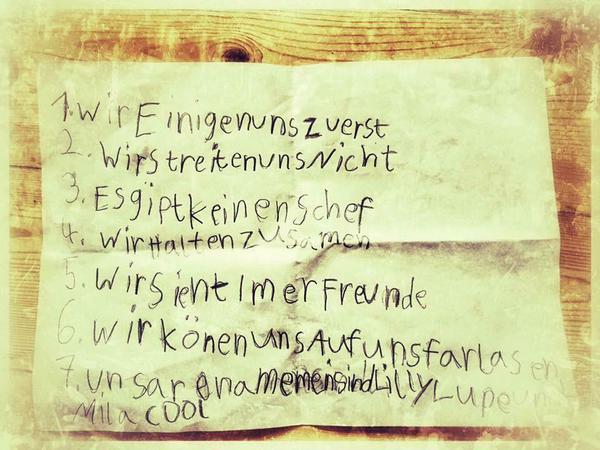 1. WirEinigenunszverst
2. WirstreitenunsNicht
3. EsgiptkeinenSchef
4. WirHaltenzusamen
5. WirSientImerFreunde
6. WirkönenunsAufunsfarlasen
7. unsarena sindLillyLupeun
Mila COOL